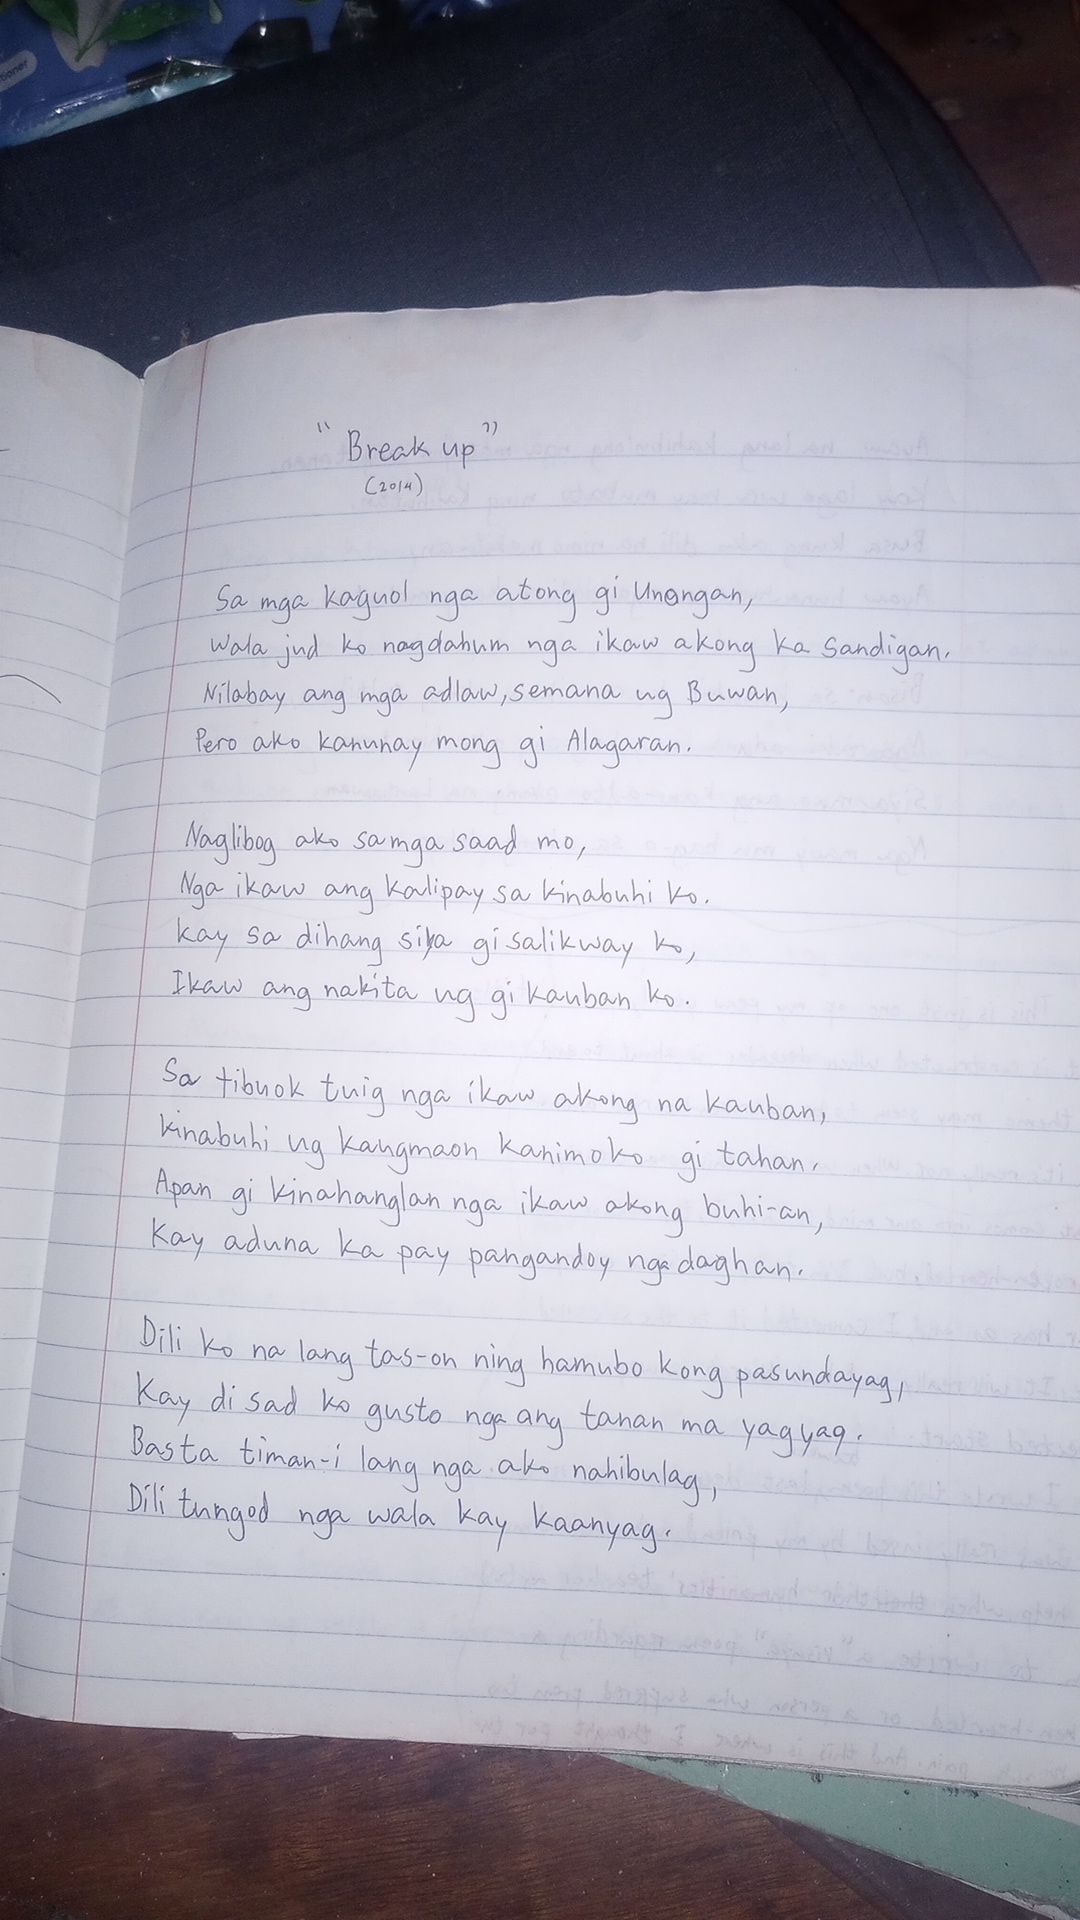 "Break up"
(2014)
Sa mga kaguol nga atong gi Unongan,
Wala jud ko nagdahum nga ikaw akong ka Sandigan.
Nilabay ang mga adlaw, semana ug Buwan,
Pero ako kanunay mong gi Alagaran.
Naglibog ako samga saad mo,
Nga ikaw ang kalipay sa kinabuhi ko.
Kay sa dihang siya gi salikway ko,
Ikaw ang nakita ug gi kauban ko.
Sa tibuok tuig nga ikaw akong na kauban,
kinabuhi ug kaugmaon kanimo ko gi tahan.
Apan gi kinahanglan nga ikaw akong buhi-an,
Kay aduna ka pay pangandoy nga daghan.
Dili ko na lang tas-on ning hamubo kong pasundayag,
Kay di sad ko gusto nga ang tanan ma yagyag.
Basta timan-i lang nga ako nahibulag,
Dili tungod nga wala kay kaanyag.